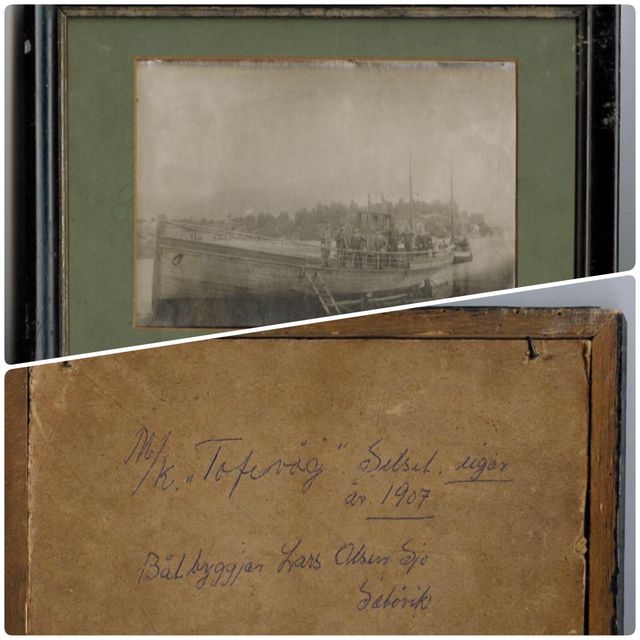 M/K. "Tofevåg" Selsk. eigar
år 1907
Båtbyggjar Lars Olsen Sjo
Sæbövik